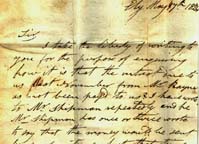 Ely May 17th 18
Sir
I take the liberty of writing to
you for the purpose of enquiring
how it is that the interest due to
us from Mr Rayne
as not been paid to us I had wrote
to Mr Shipman repeatedly and he
Mr Shipman has once or twice wrote
to say that the money would be sent